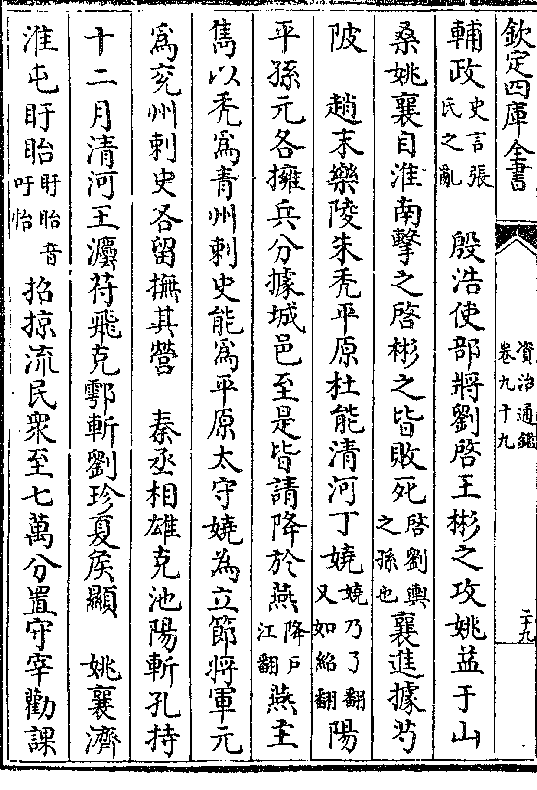 欽定四庫全書
資治通鑑
卷九十九
二十九
輔政史言張氏之亂 殷浩使部將劉啓王彬之攻姚益于山
桑姚襄自淮南擊之啓彬之皆敗死啓劉輿之孫也襄進據芍
陂 趙末樂陵朱禿平原杜能清河丁嬈嬈乃了翻又如紹翻陽
平孫元各擁兵分據城邑至是皆請降於燕降户江翻燕主
雋以禿為青州刺史能為平原太守嬈為立節將軍元
為兗州刺史各留撫其營 秦丞相雄克池陽斬孔持
十二月清河王灋苻飛克鄠斬劉珍夏侯顯 姚襄濟
淮屯盱眙盱眙音吁怡招掠流民衆至七萬分置守宰勸課